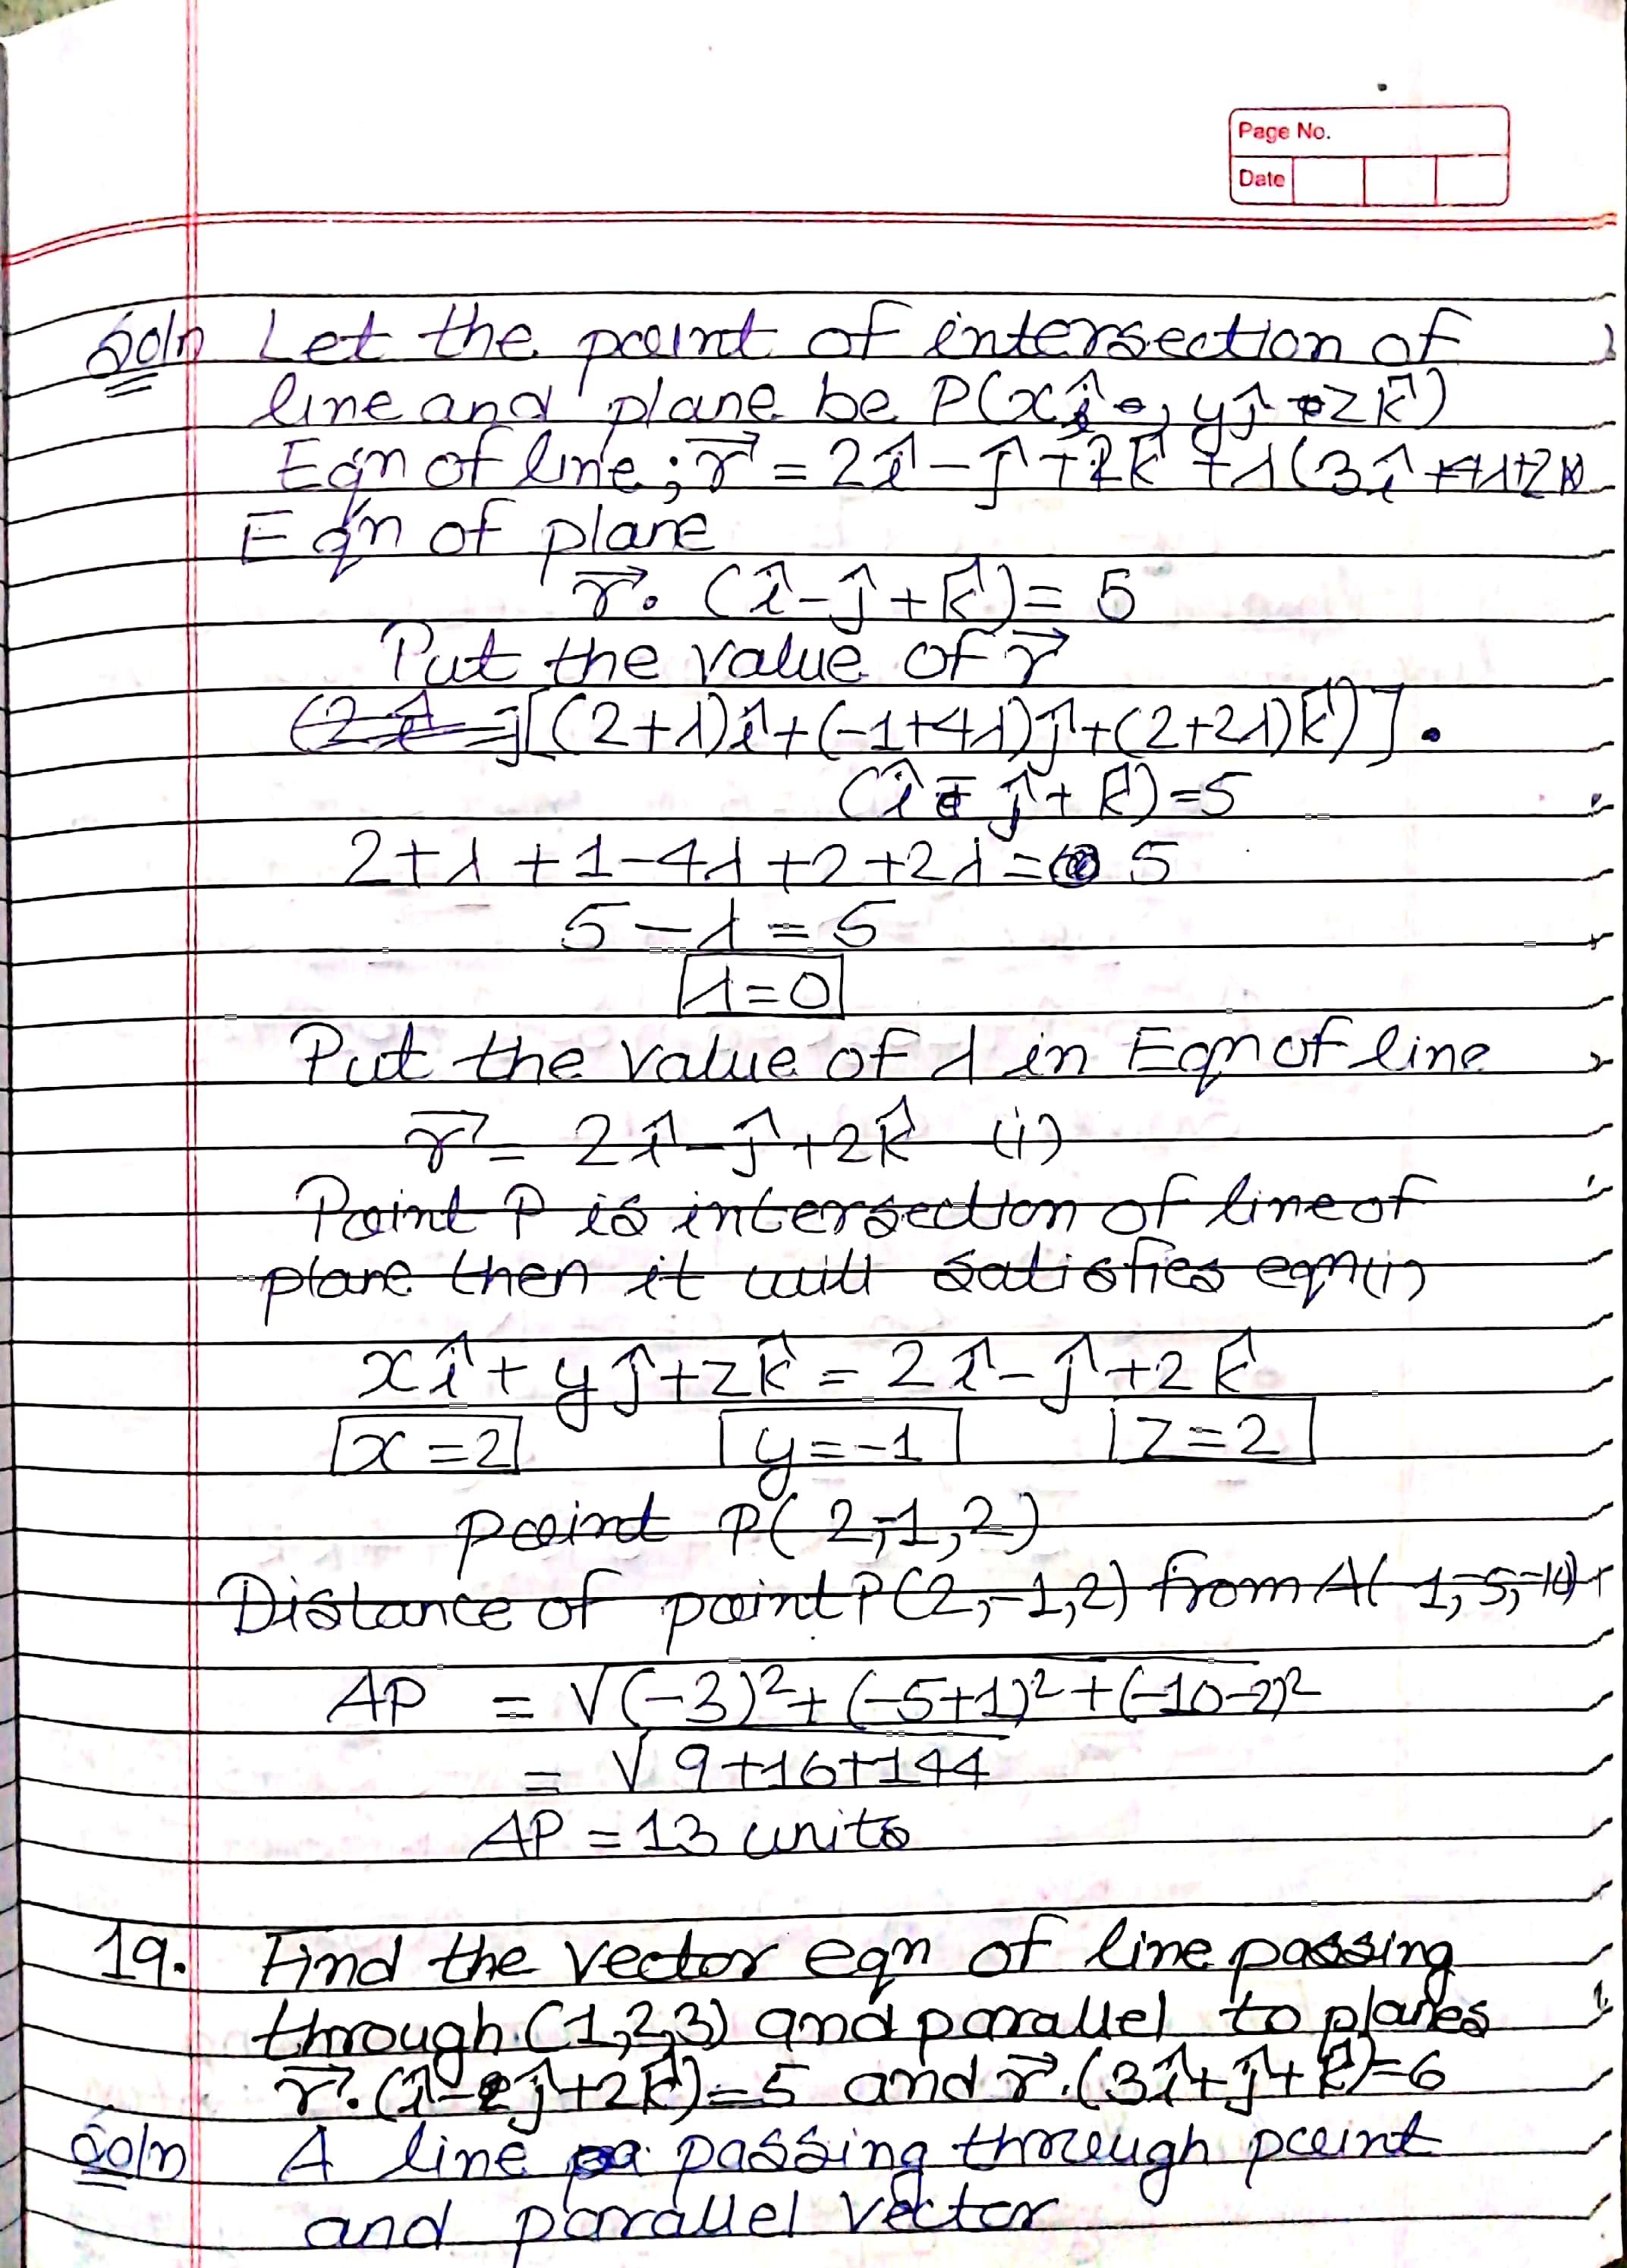 Page No.
Date
Soln Let the point of intersection of
line and plane be P(xî, yĵ + zk̂)
Eqn of line; r⃗ = 2î - ĵ + 2k̂ + λ(3î + 4λ + 2k̂
Eqn of plane
r⃗. (î - ĵ + k̂) = 5
Put the value of r⃗
[(2+λ)î + (-1+4λ)ĵ + (2+2λ)k̂)].
(î - ĵ + k̂) = 5
2 + λ + 1 - 4λ + 2 + 2λ = 5
5 - λ = 5
λ = 0
Put the value of λ in Eqn of line
r⃗ = 2î - ĵ + 2k̂ (i)
Point P is intersection of line of
plane then it will satisfies eqn (i)
xî + yĵ + zk̂ = 2î - ĵ + 2k̂
x = 2 y = -1 z = 2
point P(2, -1, 2)
Distance of point P(2, -1, 2) from A(-1, -5, -10)
AP = √(-3)² + (-5+1)² + (-10-2)²
= √9+16+144
AP = 13 units
19. Find the vector eqn of line passing
through (1, 2, 3) and parallel to planes
r⃗. (î - ĵ + 2k̂) = 5 and r⃗. (3î + ĵ + k̂) = 6
Soln A line passing through point
and parallel vector